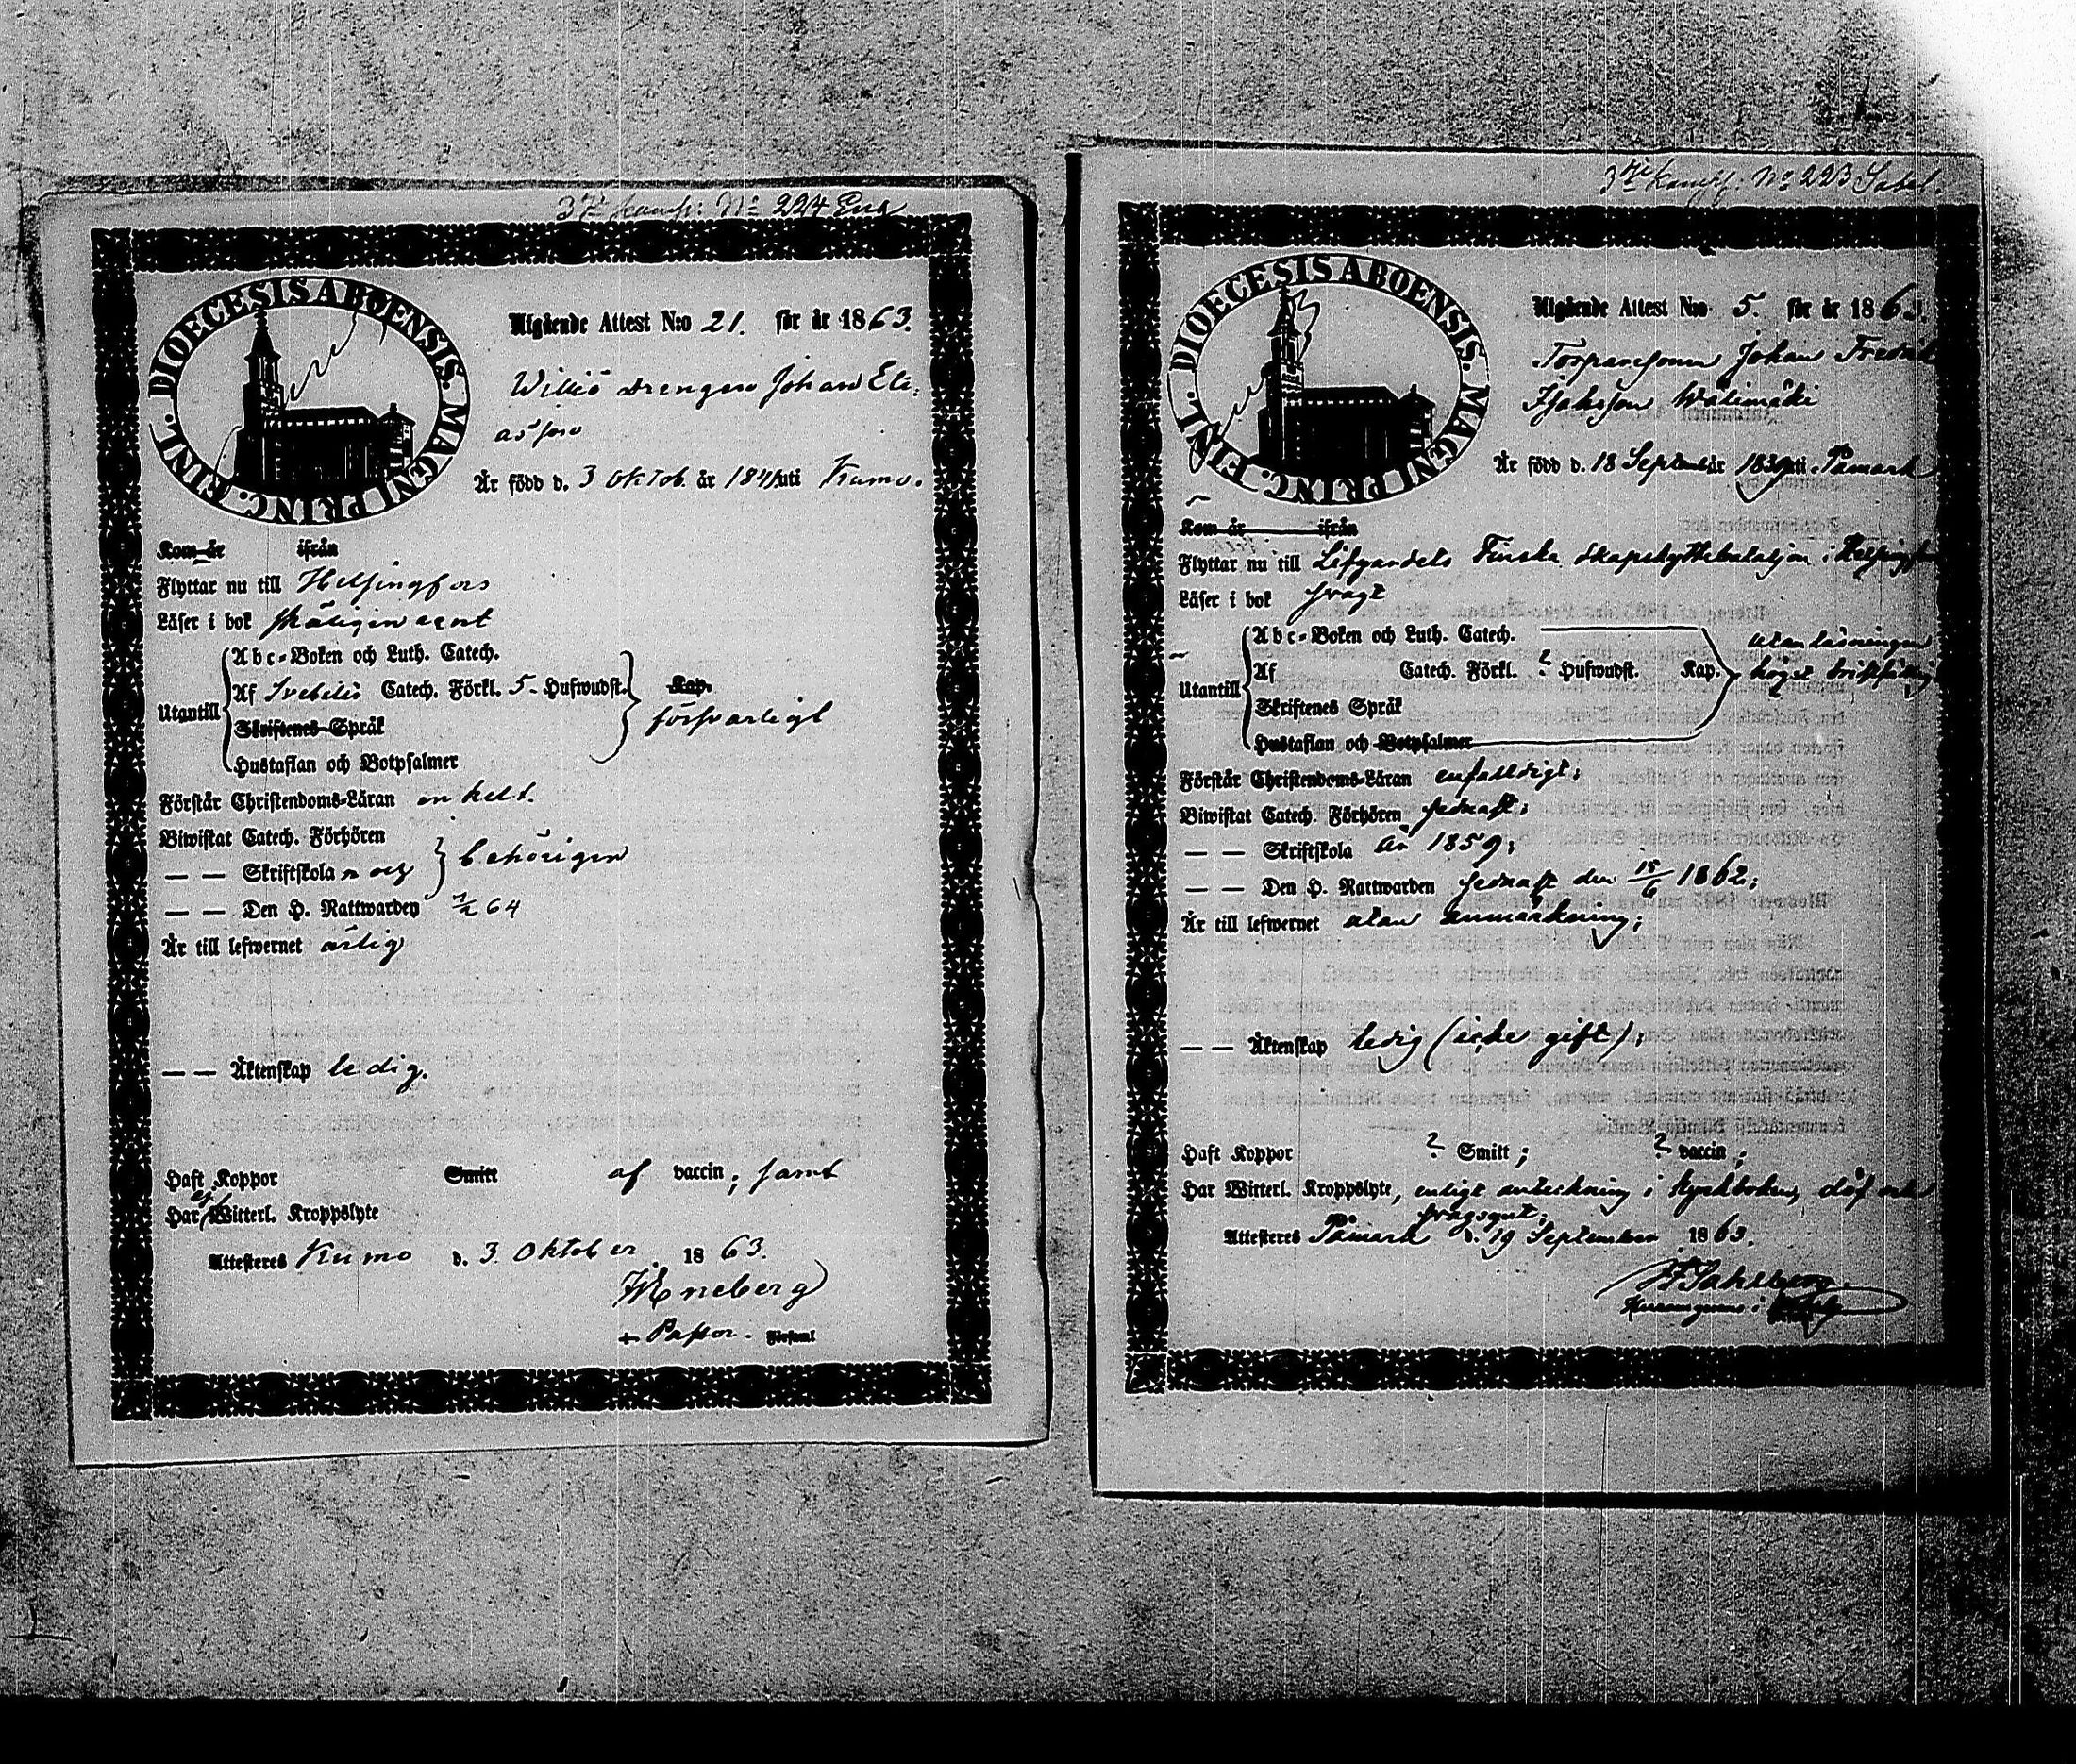 3je kompf: No 224 Ens
DIOECESIS ABOENSIS. MAGNI PRINC. FINL.
Utgående Attest N:o 21. för år 1863.
drengen Johan Eli-
asson
Är född d. 3 Oktob. år 1841 uti Kumo.
Kom år ifrån
Flyttar nu till Helsingfors
Läser i bok skäligen rent
Utantill
Abc-Boken och Luth. Catech.
Af Svebilii Catech. Förkl. 5 Hufwudst. Kap.
försvarligt
Skriftenes Språk
Hustaflan och Botpsalmer
Förstår Christendoms-Läran enkelt.
Biwistat Catech. Förhören
— — Skriftskolan och behörigen
— — Den H. Nattwarden 7/2 64
Är till lefwernet ärlig
— — Äktenskap ledig.
Haft Koppor Smitt af vaccin; samt
Har ej Witterl. Kroppslyte
Attesteres Kumo d. 3 Oktober 1863.
Eneberg
Pastor.
3je kompf: No 223 Sabel.
DIOECESIS ABOENSIS. MAGNI PRINC. FINL.
Utgående Attest N:o 5. för år 1863.
Torparesonen Johan Fredrik
Isaksson Wälimäki
Är född d. 18 September 1839 uti Påmark
Kom år ifrån
Flyttar nu till Lifgardets Finska Skarpskyttebataljon i Helsingfors
Läser i bok svagt
Utantill
Abc-Boken och Luth. Catech.
utanläsningen
Af Catech. Förkl. ? Hufwudst. Kap. högst bristfällig
Skriftenes Språk
Hustaflan och Botpsalmer
Förstår Christendoms-Läran enfaldigt;
Biwistat Catech. Förhören sednast;
— — Skriftskola år 1859;
— — Den H. Nattwarden sednast den 15/6 1862;
Är till lefwernet utan anmärkning;
— — Äktenskap ledig (icke gift);
Haft Koppor ? Smitt; ? vaccin;
Har Witterl. Kroppslyte, enligt anteckning i kyrkboken, döf och
svagsynt;
Attesteres Påmark d. 19 September 1863.
F. Sahlberg
i